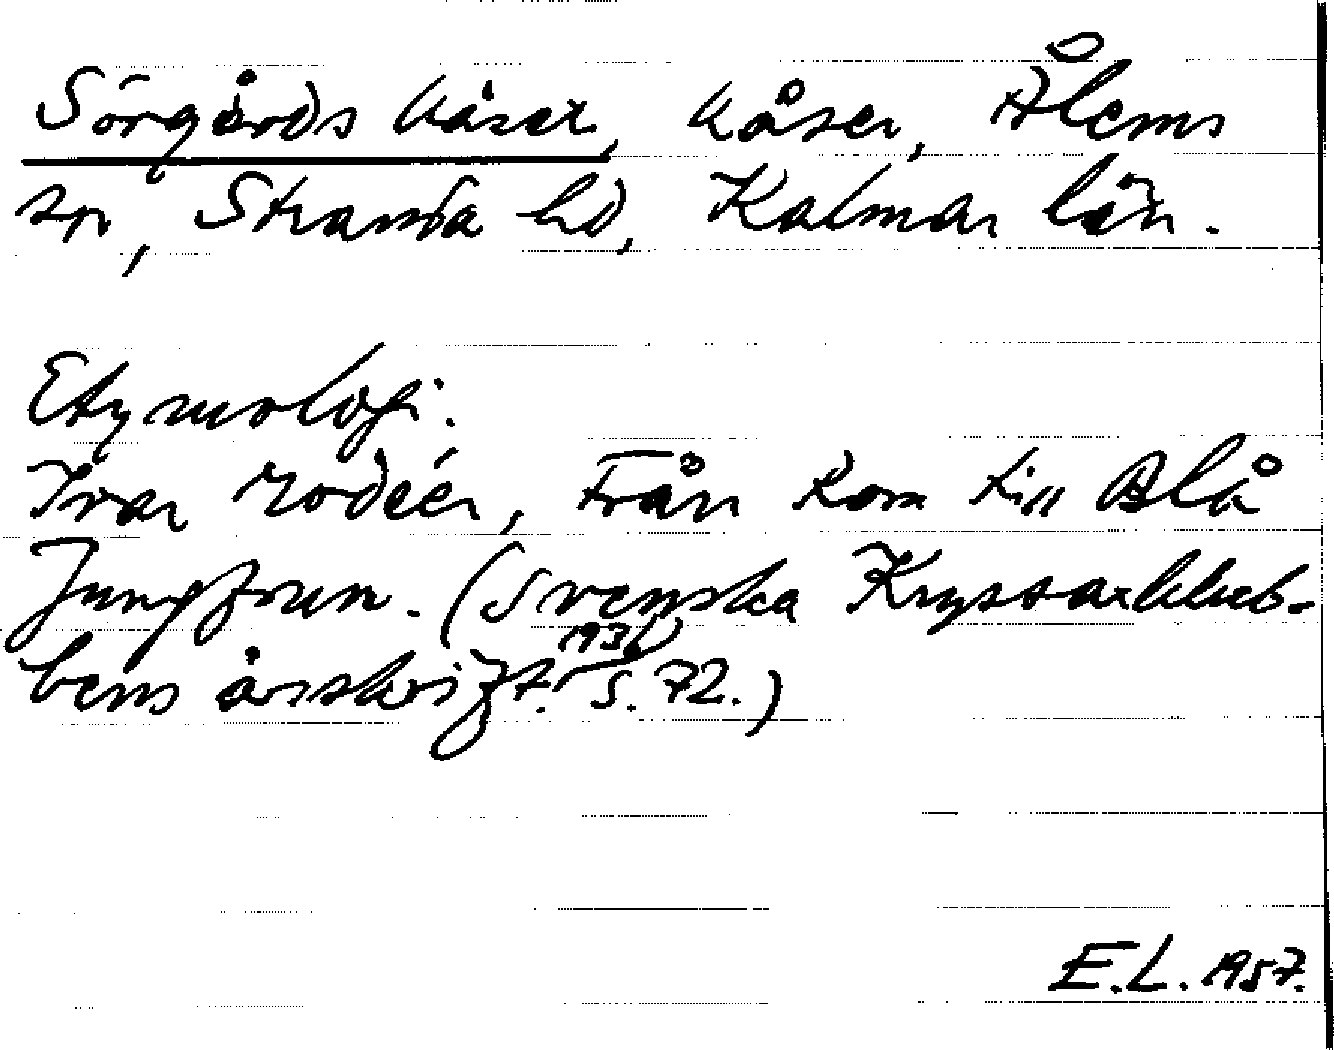 Sörgårds kåser, kåser, Ålems
sn, Stranda hd, Kalmar län.
Etymologi.
Ivar Modéer, Från Kom till Blå
Jungfrun. (Svenska Kryssarklub-
bens årsskrift. 1936, S. 72.)
E.L. 1957.